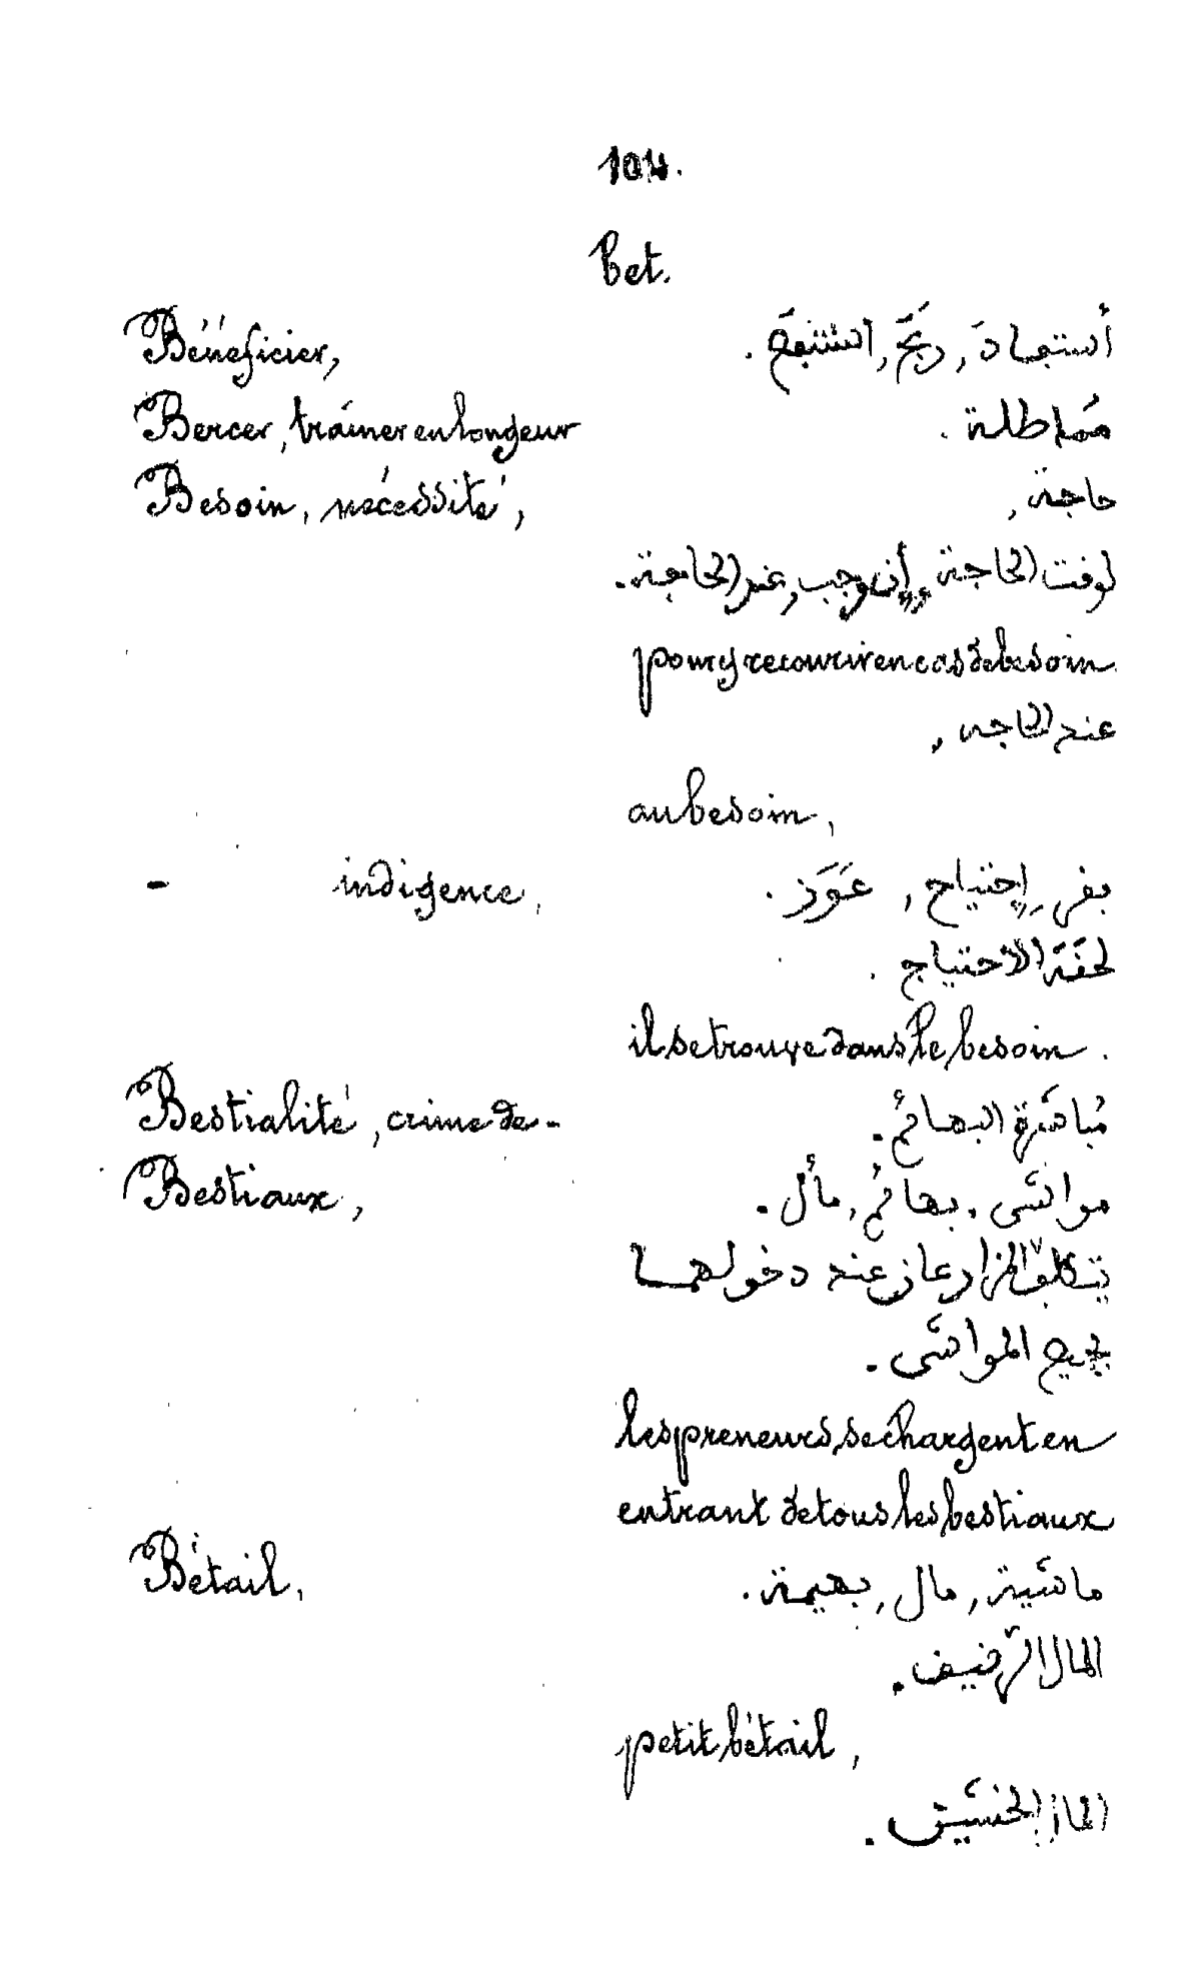 104.
bet.
Bénéficier, أستفادَ, ربَحَ, استنفعَ.
Bercer, traîner en longueur مُماطلة.
Besoin, nécessité, حاجة,
لوقت الحاجة, إن وجب, عند الحاجة.
pour y recourir en cas de besoin.
عند الحاجه,
au besoin,
- indigence, فقر, إحتياج, عَوَز.
لحقَهَ الاحتياج.
il se trouve dans le besoin.
Bestialité, crime de - مُباشَرة البهائم.
Bestiaux, مواشى, بهائم, مال.
يتكلف المزارعان عند دخولهما
بجميع المواشى.
les preneurs, se chargent en
entrant de tous les bestiaux
Bétail, ماشية, مال, بهيمة.
المال الرقيق.
petit bétail,
المال الخشين.